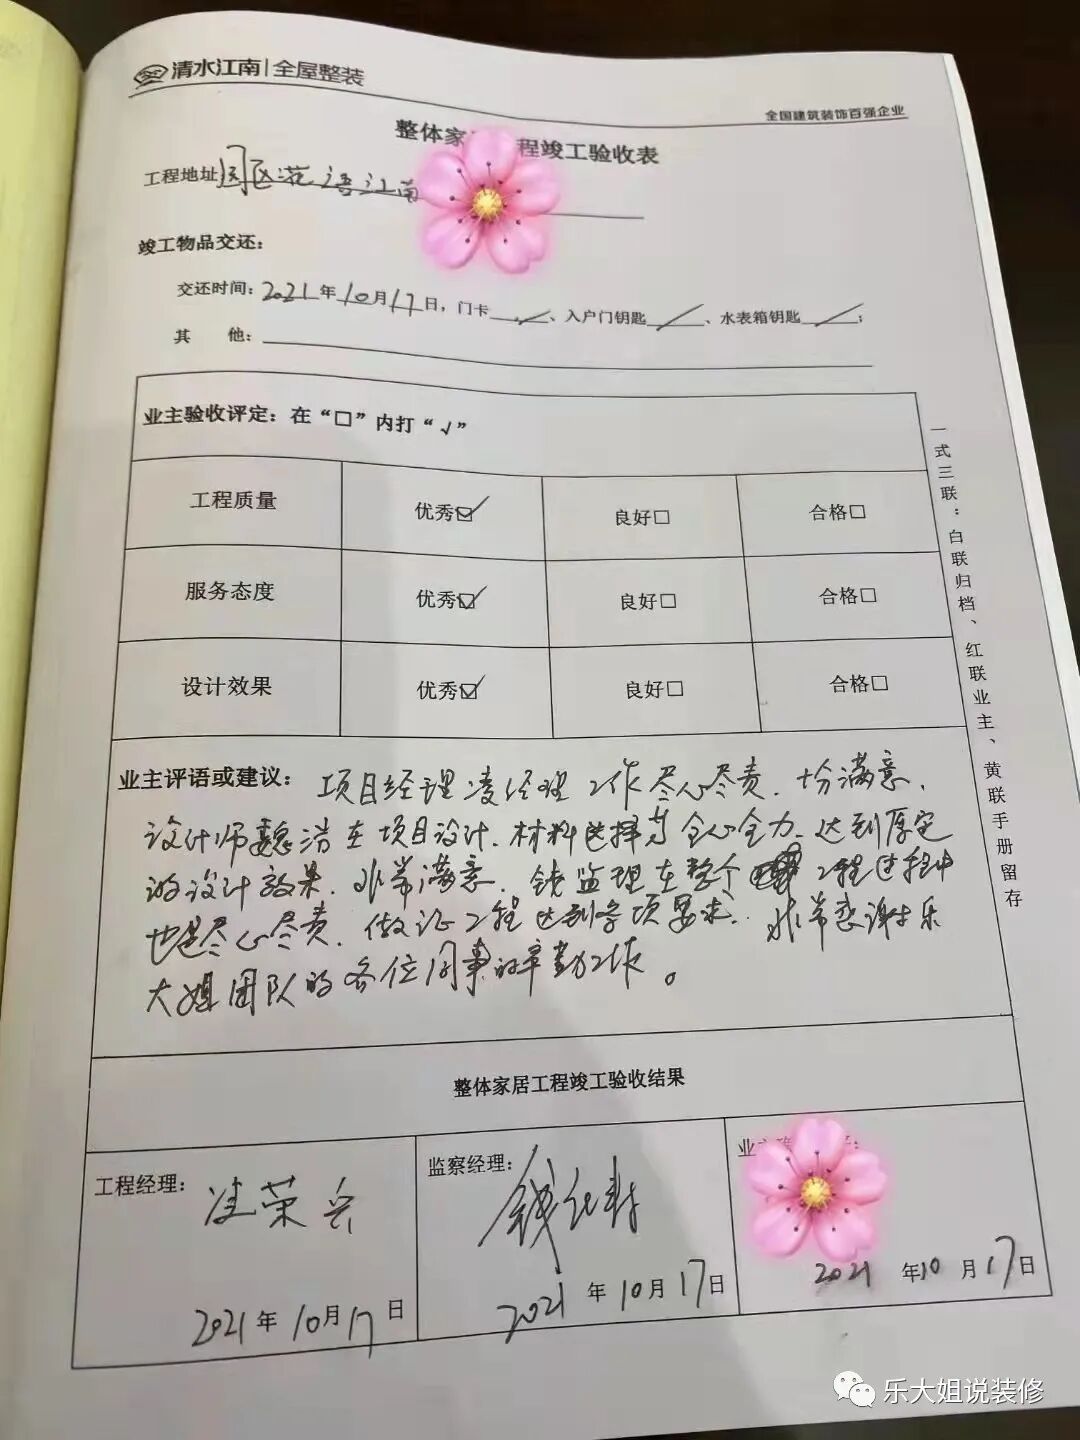 清水江南|全屋整装
全国建筑装饰百强企业
整体家 程竣工验收表
工程地址园区花语江南
竣工物品交还：
交还时间：2021年10月17日，门卡、入户门钥匙、水表箱钥匙；
其 他：
业主验收评定：在“□”内打“√”
工程质量 优秀☑ 良好□ 合格□
服务态度 优秀☑ 良好□ 合格□
设计效果 优秀☑ 良好□ 合格□
业主评语或建议：项目经理凌经理工作尽心尽责．十分满意．
设计师魏浩在项目设计．材料选择等全心全力．达到原定
的设计效果．非常满意．钱监理在整个工程过程中
也是尽心尽责．做证工程达到各项要求．非常感谢乐
大姐团队的各位同事的辛勤工作。
一式三联：白联归档、红联业主、黄联手册留存
整体家居工程竣工验收结果
工程经理：凌荣
2021年10月17日
监察经理：钱
2021年10月17日
业
2021年10月17日
乐大姐说装修